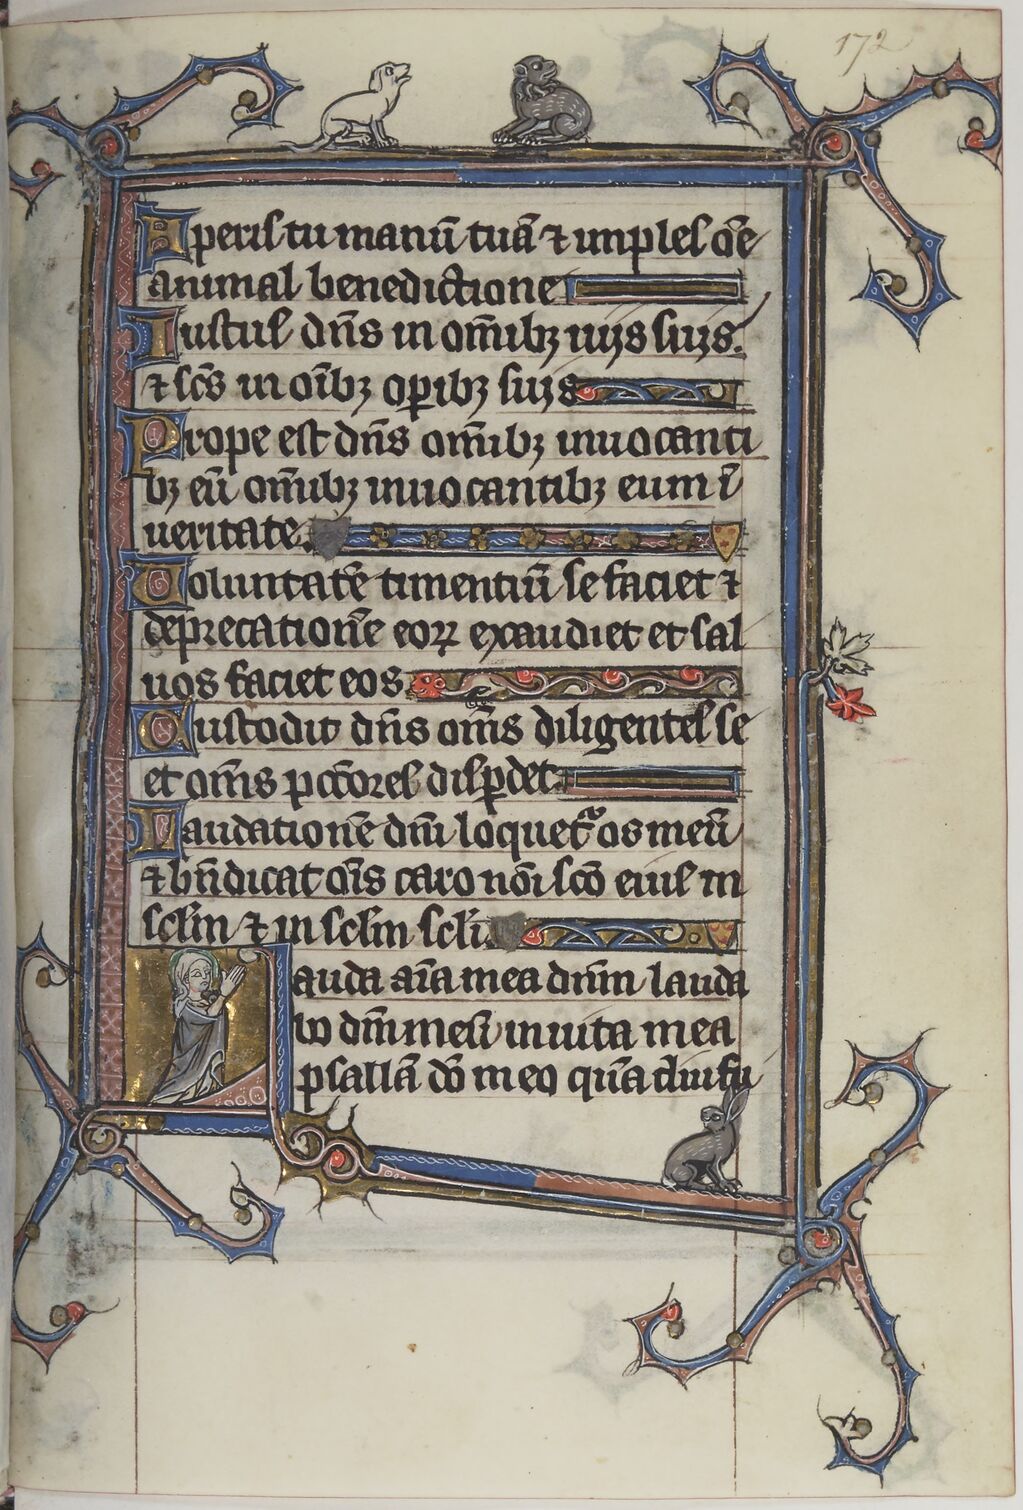 172
Aperis tu manū tuā ⁊ imples oē
animal benedictione
Iustus dn̄s in om̄ibꝫ uijs suis.
⁊ sc̄s in oībꝫ oꝑibꝫ suis
Prope est dn̄s om̄ibꝫ inuocanti
bꝫ eū om̄ibꝫ inuocantibꝫ eum ī
ueritate.
Uoluntatē timentiū se faciet ⁊
deprecationē eoꝝ exaudiet et sal
uos faciet eos.
Custodit dn̄s om̄s diligentes se
et om̄s pctōres disꝑdet.
Laudationē dn̄i loquet᷑ os meū
⁊ bn̄dicat oīs caro nōi scō eius in
sclm̄ ⁊ in sclm̄ scli.
Lauda aīa mea dnm̄ lauda
bo dm̄ meū in uita mea
psallā dō meo quādiu fu